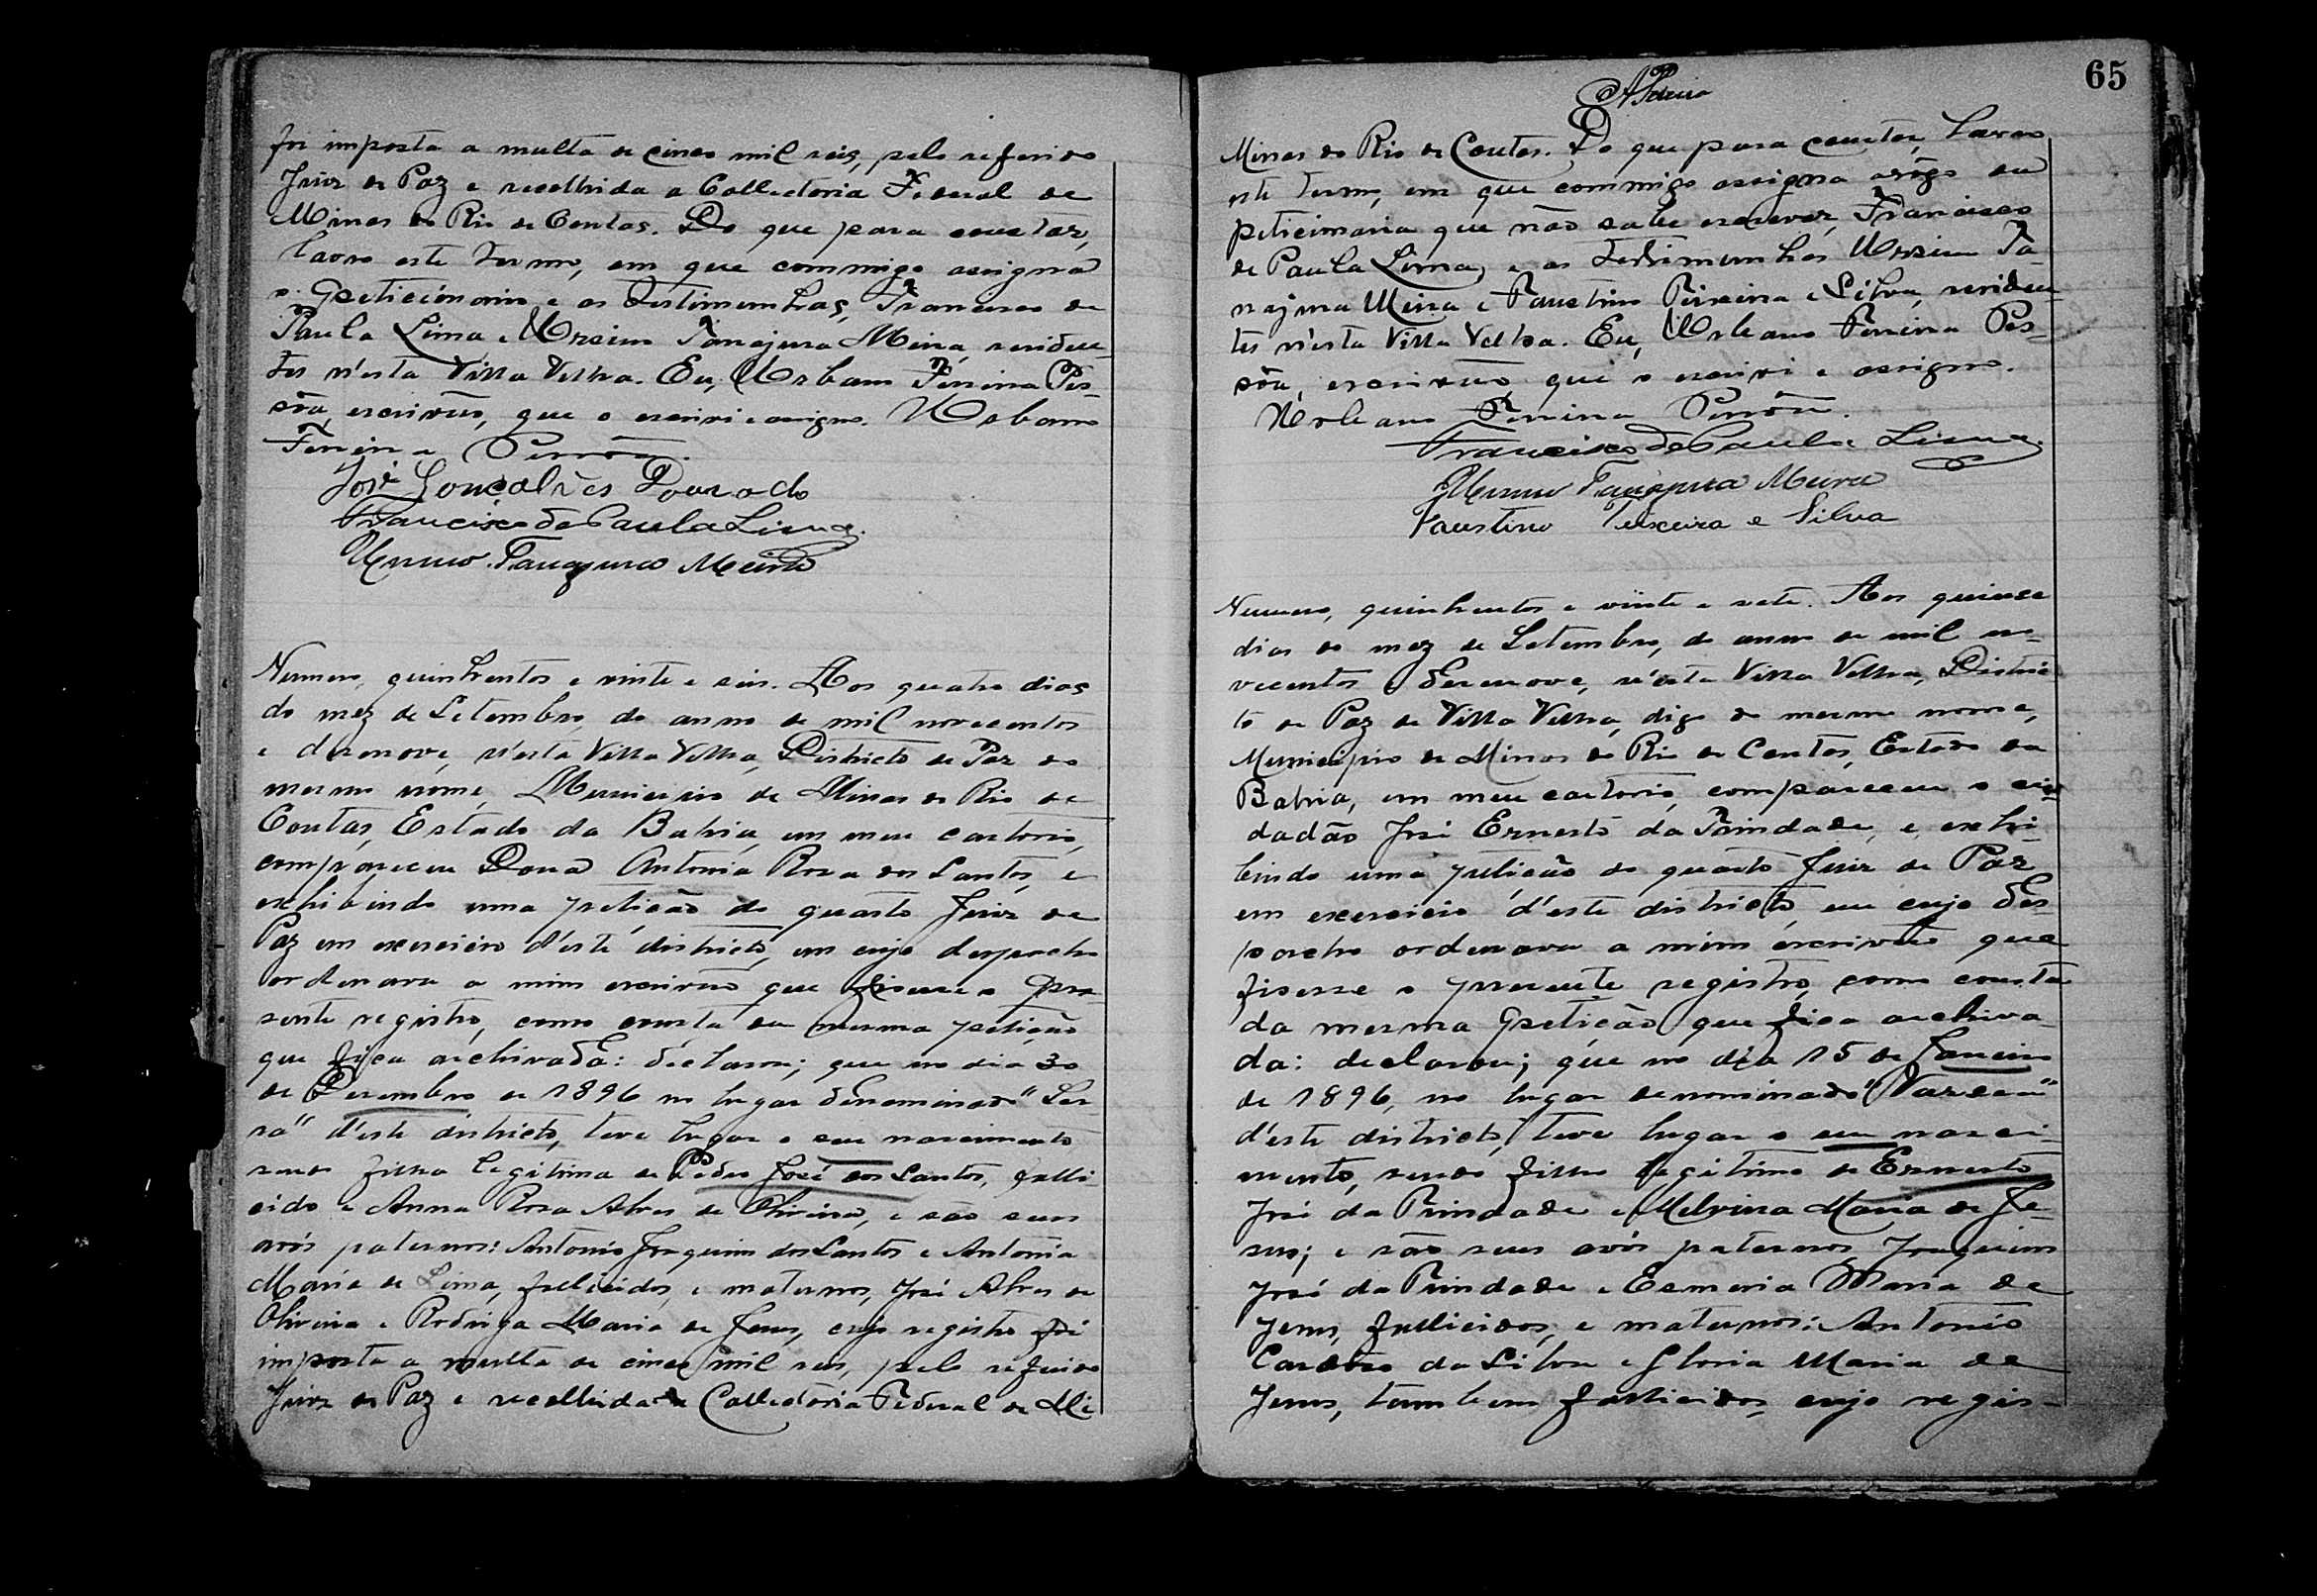 foi imposta a multa de cinco mil reis, pelo referido
Juiz de Paz e recolhida a Collectoria Federal de
Minas do Rio de Contas. Do que para constar,
lavro este termo, em que commigo assigna
o peticionario e as testimunhas, Francisco de
Paula Lima e Ursino Tanajura Meira, residen-
tes n'esta Villa Velha. Eu, Urbano Pereira Pes-
sôa, escrivão, que o escrivi e assigno. Urbano
Pereira Pessôa.
José Gonçalves Dourado
Francisco de Paula Lima.
Ursino Tanajura Meira
Numero, quinhentos e vinte e seis. Aos quatro dias
do mez de Setembro, do anno de mil novecentos
e desenove, n'esta Villa Velha, Districto de Paz do
mesmo nome, Municipio de Minas do Rio de
Contas, Estado da Bahia, em meu cartorio,
compareceu Dona Antonia Rosa dos Santos, e
exhibindo uma petição do quarto Juiz de
Paz em exercicio d'este districto, em cujo despacho
ordenara a mim escrivão que fisesse o pre-
sente registro, como consta da mesma petição
que fica archivada: declarou; que no dia 30
de Dezembro de 1896 no lugar denominado "Ser-
ra" d'este districto, teve lugar o seu nascimento
sendo filha legitima de Pedro José dos Santos, falli
cido e Anna Rosa Alves de Oliveira, e são seus
avós paternos: Antonio Joaquim dos Santos e Antonia
Maria de Lima, fallicidos, e maternos, José Alves de
Oliveira e Rodriga Maria de Jesus, cujo registro foi
imposta a multa de cinco mil reis, pelo referido
Juiz de Paz e recolhida a Collectoria Federal de Mi
65
Minas do Rio de Contas. Do que para constar, lavro
este termo, em que commigo assigna arôgo da
peticionaria que não sabe escrever, Francisco
de Paula Lima, e as testimunhas Ursino Ta-
najura Meira e Faustino Teixeira e Silva, residen-
tes n'esta Villa Velha. Eu, Urbano Pereira Pes-
sôa, escrivão que o escrivi e assigno.
Urbano Pereira Pessôa.
Francisco de Paula Lima.
Ursino Tanajura Meira
Faustino Teixeira e Silva
Numero, quinhentos e vinte e sete. Aos quinse
dias do mez de Setembro, do anno de mil no-
vecentos e desenove, n'esta Villa Velha, Distric-
to de Paz de Villa Velha, digo do mesmo nome,
Municipio de Minas do Rio de Contas, Estado da
Bahia, em meu cartorio, compareceu o ci-
dadão José Ernesto da Trindade, e exhi-
bindo uma petição do quarto Juiz de Paz
em exercicio d'este districto, em cujo des-
pacho ordenara a mim escrivão que
fisesse o presente registro, como consta
da mesma petição que fica archiva-
da: declarou; que no dia 15 de Janeiro
de 1896, no lugar denominado "Varsea"
d'este districto, teve lugar o seu nasci-
mento, sendo filho legitimo de Ernesto
José da Trindade e Melvina Maria de Je-
sus; e são seus avós paternos, Joaquim
José da Trindade e Esmeria Maria de
Jesus, fallicidos, e maternos: Antonio
Cardoso da Silva e Gloria Maria de
Jesus, tambem fallicidos, cujo regis-